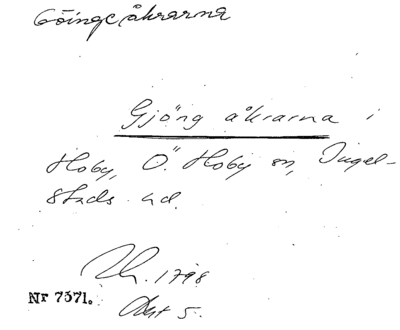 Göinge åkrarna
Gjöng åkrarna i
Hoby, Ö. Hoby sn, Ingel-
stads hd.
1798
Nr 7371.
5.